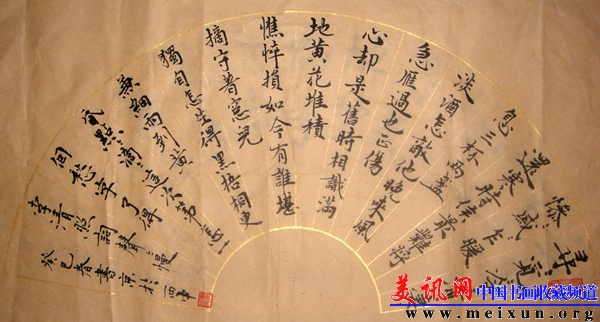 尋〻覓〻
慘〻戚〻乍暖
還寒時候最難將
息三杯兩盞
淡酒怎敵他晚來風
急雁過也正傷
心却是舊時相識滿
地黄花堆積
憔悴損如今有誰堪
摘守著窓兒
獨自怎生得黑梧桐更
兼細雨到黄
昏點〻滴〻這次第怎一
個愁字了得
李清照詞聲〻慢
癸巳春書京
美讯网 中国书画收藏频道
www.meixun.org